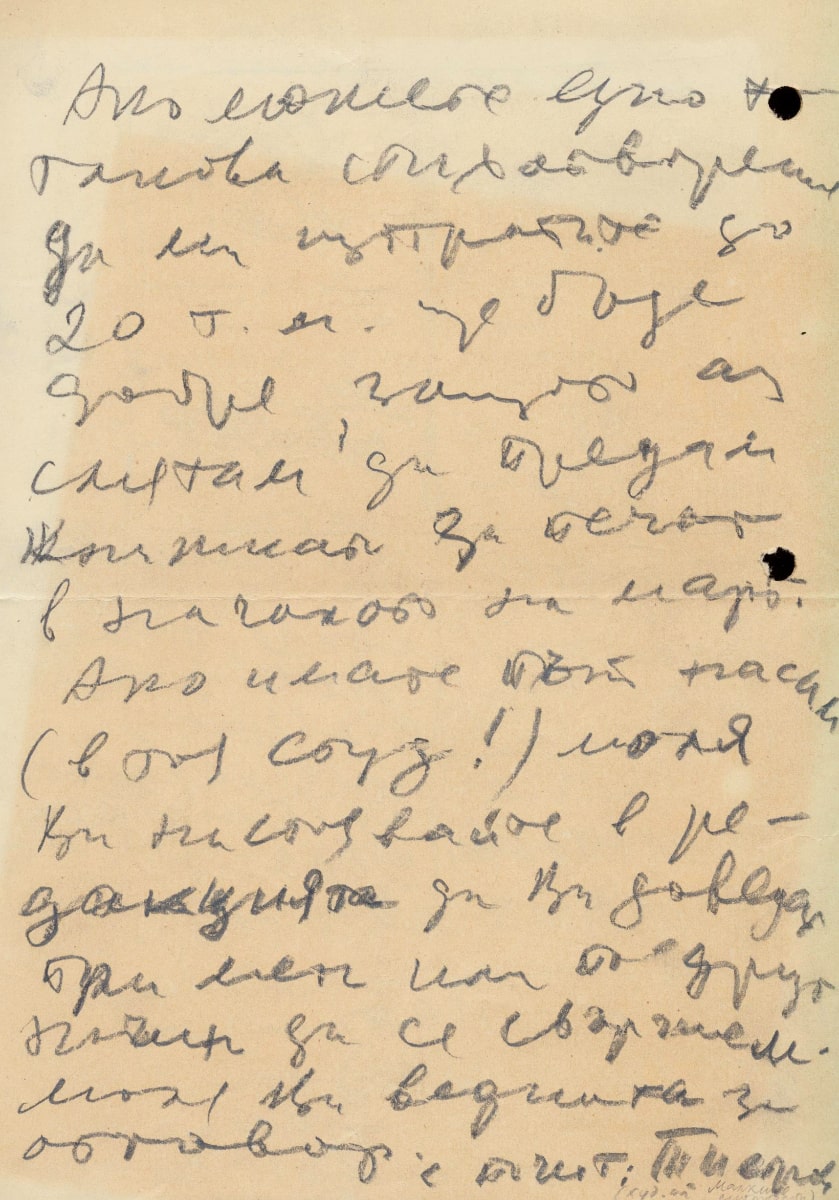 Ако можете едно
такова стихотворение
да ми изпратите до
20 т. м. ще бъде
добре, защото аз
смятам да предам
книжката за печат
в началото на март.
Ако имате път насам
(в тоя студ!) моля
Ви настоявайте в ре-
дакцията да Ви доведат
при мен или по друг
начин да се свържем.
Моля Ви веднага за
отговор. с почит: